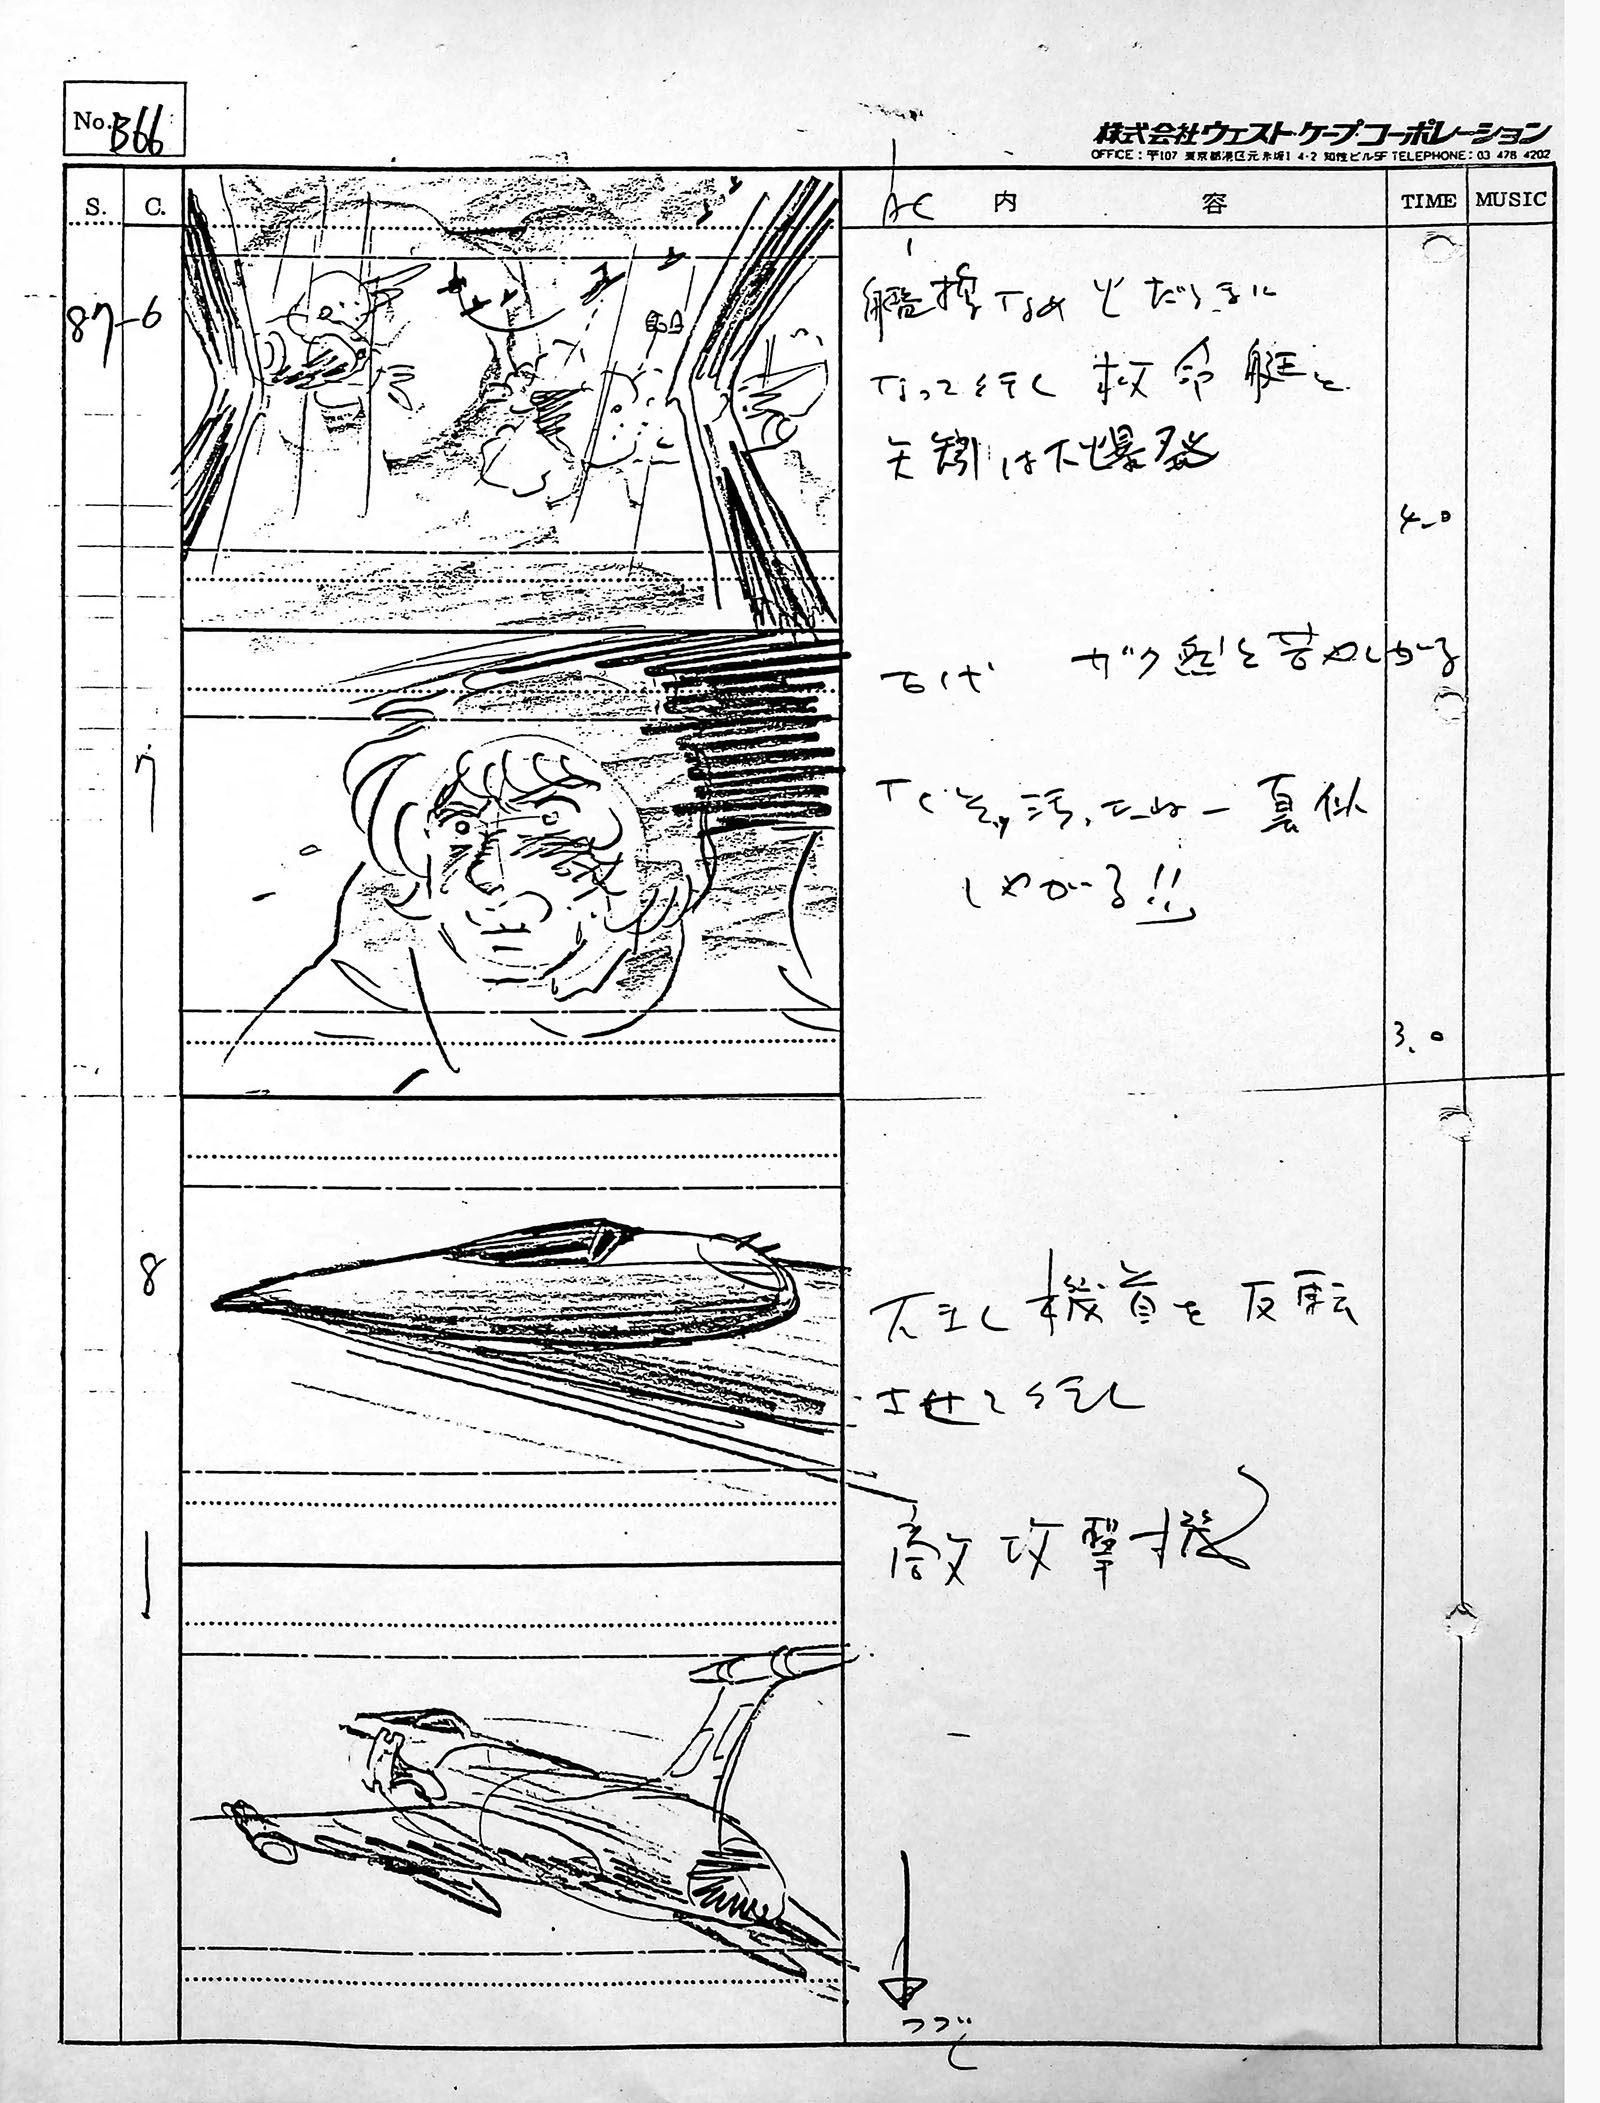 No. B66
株式会社ウェスト・ケープ・コーポレーション
OFFICE:〒107 東京都港区元赤坂1 4-2 知性ビル5F TELEPHONE: 03 478 4202
S. C. 内 容 TIME MUSIC
87-6
艦橋なめ 火だるまに
なって行く 救命艇と
は大爆発
4.0
7
古代 ガク然と
真似
しやがる!!
3.0
8
機首を反転
させて行く
敵攻撃機
つづく